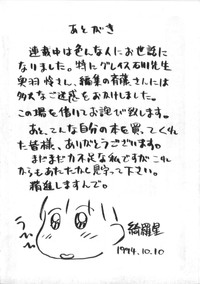 あとがき
連載中は色んな人にお世話に
なりました。特にグレイス石川先生
奥羽怜さん、編集の斉藤さんには
多大なご迷惑をおかけしました。
この場を借りてお詫び致します。
あと、こんな自分の本を買ってくれ
た皆様、ありがとうございます。
まだまだ力不足な私ですがこれ
からもあたたかく見守って下さい。
精進しますんで。
綺羅星
1994.10.10